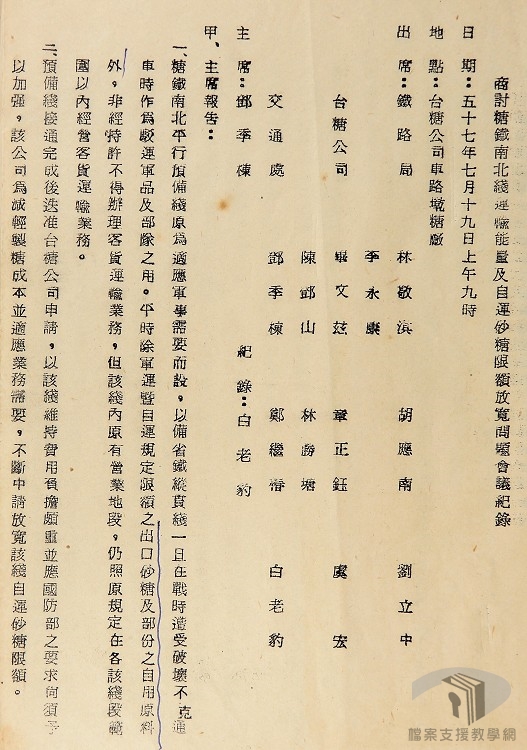 商討糖鐵南北綫運輸能量及自運砂糖限額放寬問題會議紀錄
日期：五十七年七月十九日上午九時
地點：台糖公司車路墘糖廠
出席：鐵路局　林敬濱　胡應南　劉立中
李永康
台糖公司　畢文茲　章正鈺　虞宏
陳鄧山　林勝塘
交通處　鄧季棟　鄭繼睿　白老豹
主席：鄧季棟　紀錄：白老豹
甲、主席報告：
一、糖鐵南北平行預備綫原為適應軍事需要而設，以備省鐵縱貫綫一旦在戰時遭受破壞不克通
車時作為駁運軍品及部隊之用。平時除軍運暨自運規定限額之出口砂糖及部份之自用原料
外，非經特許不得辦理客貨運輸業務，但該綫內原有營業地段，仍照原規定在各該綫段範
圍以內經營客貨運輸業務。
二、預備綫接通完成後迭准台糖公司申請，以該綫維持費用負擔頗重並應國防部之要求尚須予
以加强，該公司為減輕製糖成本並適應業務需要，不斷申請放寬該綫自運砂糖限額。
檔案支援教學網